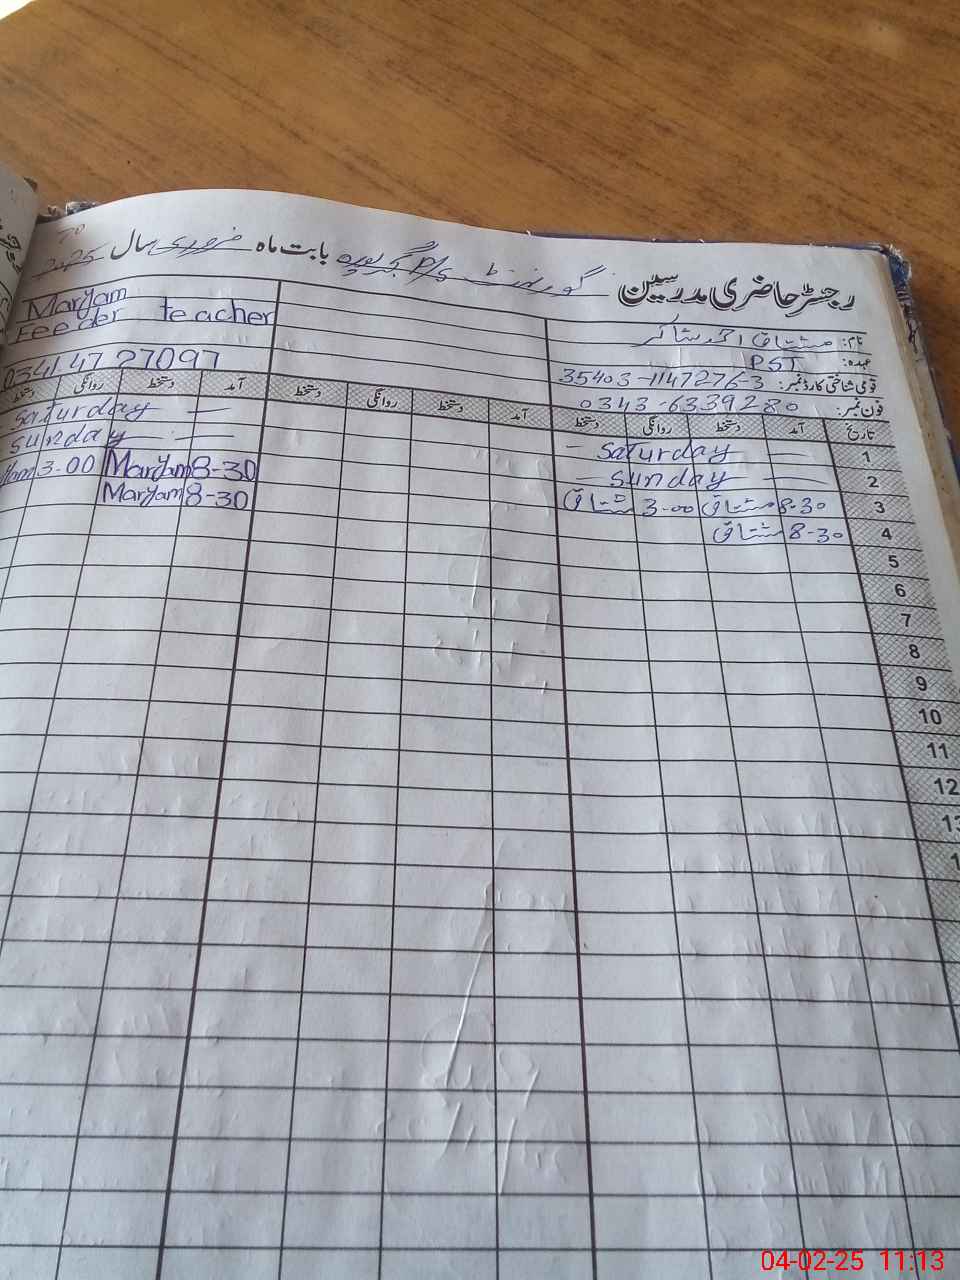 رجسٹر حاضری مدرسین گورنمنٹ P/S گجر پورہ بابت ماہ فروری سال 2025
نام: مشتاق احمد شاکر
عہدہ: PST
قومی شناختی کارڈ نمبر: 35403-1147276-3
فون نمبر: 0343-6339280
تاریخ آمد دستخط روانگی دستخط
1 Saturday
2 Sunday
3 8.30 مشتاق 3.00 مشتاق
4 8-30 مشتاق
5
6
7
8
9
10
11
12
13
آمد دستخط روانگی دستخط
Maryam
Feeder teacher
0341 47 27097
آمد دستخط روانگی دستخط
Saturday
Sunday
8-30 Maryam 3.00
8-30 Maryam
04-02-25 11:13